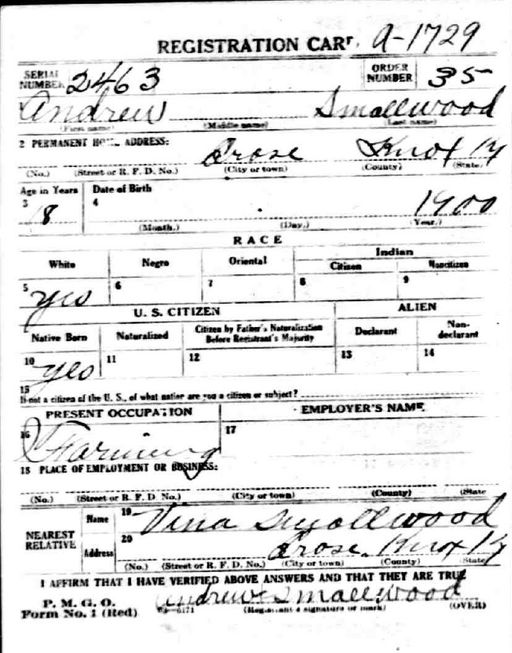 REGISTRATION CARD A-1729
SERIAL NUMBER 2463 ORDER NUMBER 35
Andrew Smallwood
(First name) (Middle name) (Last name)
2 PERMANENT HOME ADDRESS:
Crose Knox Ky
(No.) (Street or R. F. D. No.) (City or town) (County) (State)
Age in Years Date of Birth
3 4
18 1900
(Month.) (Day.) Year.)
RACE
White Negro Oriental Indian
Citizen Noncitizen
5 6 7 8 9
yes
U. S. CITIZEN ALIEN
Native Born Naturalized Citizen by Father's Naturalization Before Registrant's Majority Declarant Non-declarant
10 11 12 13 14
yes
15
If not a citizen of the U. S., of what nation are you a citizen or subject?
PRESENT OCCUPATION EMPLOYER'S NAME
16 17
Farming
18 PLACE OF EMPLOYMENT OR BUSINESS:
(No.) (Street or R. F. D. No.) (City or town) (County) (State
NEAREST RELATIVE
Name 19 Vina Smallwood
Address 20 Crose Knox Ky
(No.) (Street or R. F. D. No.) (City or town) (County) (State)
I AFFIRM THAT I HAVE VERIFIED ABOVE ANSWERS AND THAT THEY ARE TRUE
P. M. G. O.
Form No. 1 (Red) Andrew Smallwood
(Registrant's signature or mark) (OVER)